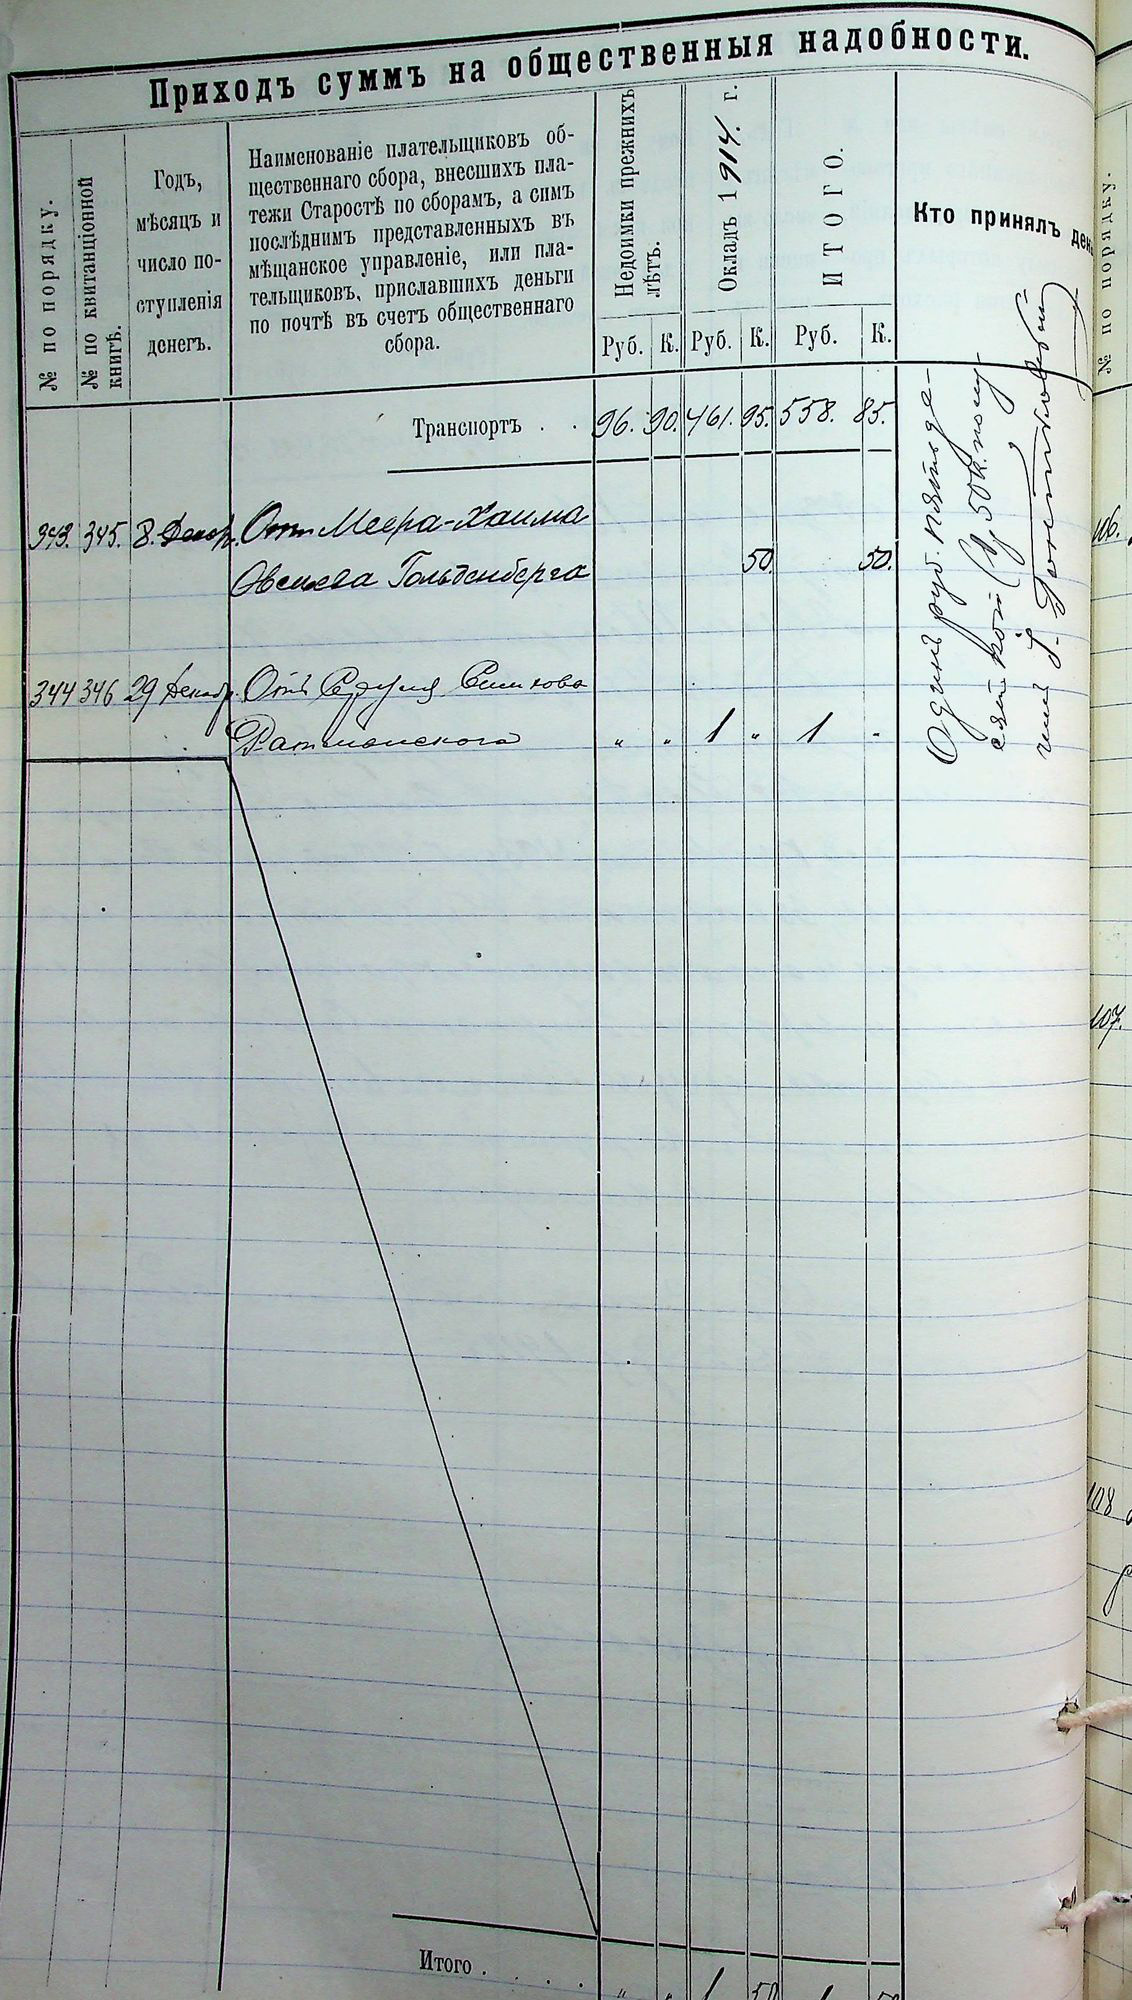 Приходъ суммъ на общественныя надобности.
№ по порядку.
№ по квитанціонной
книгѣ.
Годъ,
мѣсяцъ и
число по-
ступленія
денегъ.
Наименованіе плательщиковъ об-
щественнаго сбора, внесшихъ пла-
тежи Старостѣ по сборамъ, а симъ
послѣднимъ представленныхъ въ
мѣщанское управленіе, или пла-
тельщиковъ, приславшихъ деньги
по почтѣ въ счетъ общественнаго
сбора.
Недоимки прежнихъ
лѣтъ.
Окладъ 1914. г.
ИТОГО.
Кто принялъ ден
Руб. К. Руб. К. Руб. К.
Транспортъ . . 96. 90. 461. 95. 558. 85.
343. 345. 8. Декабр. Отъ Меера-Хаима
Овсиева Гольденберга 50. 50.
344 346 29 Декабр. Отъ Симхова
Ратманского " " 1 " 1 "
Одинъ руб. пятьде-
сят коп (1 р. 50 к. полу-
чил
Итого . . . . " " 1 50 1 50
№ по порядку.
106.
107.
108